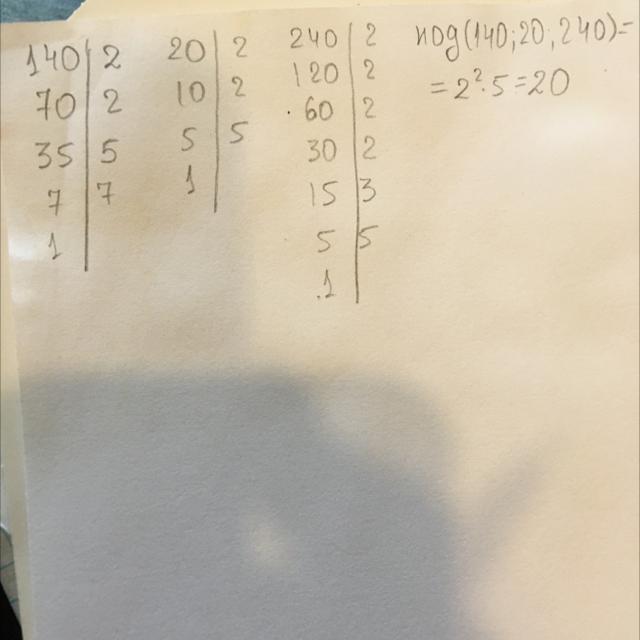 140 | 2
70 | 2
35 | 5
7 | 7
1 |
20 | 2
10 | 2
5 | 5
1 |
240 | 2
120 | 2
60 | 2
30 | 2
15 | 3
5 | 5
1 |
НОД(140;20;240)=
=2²·5=20